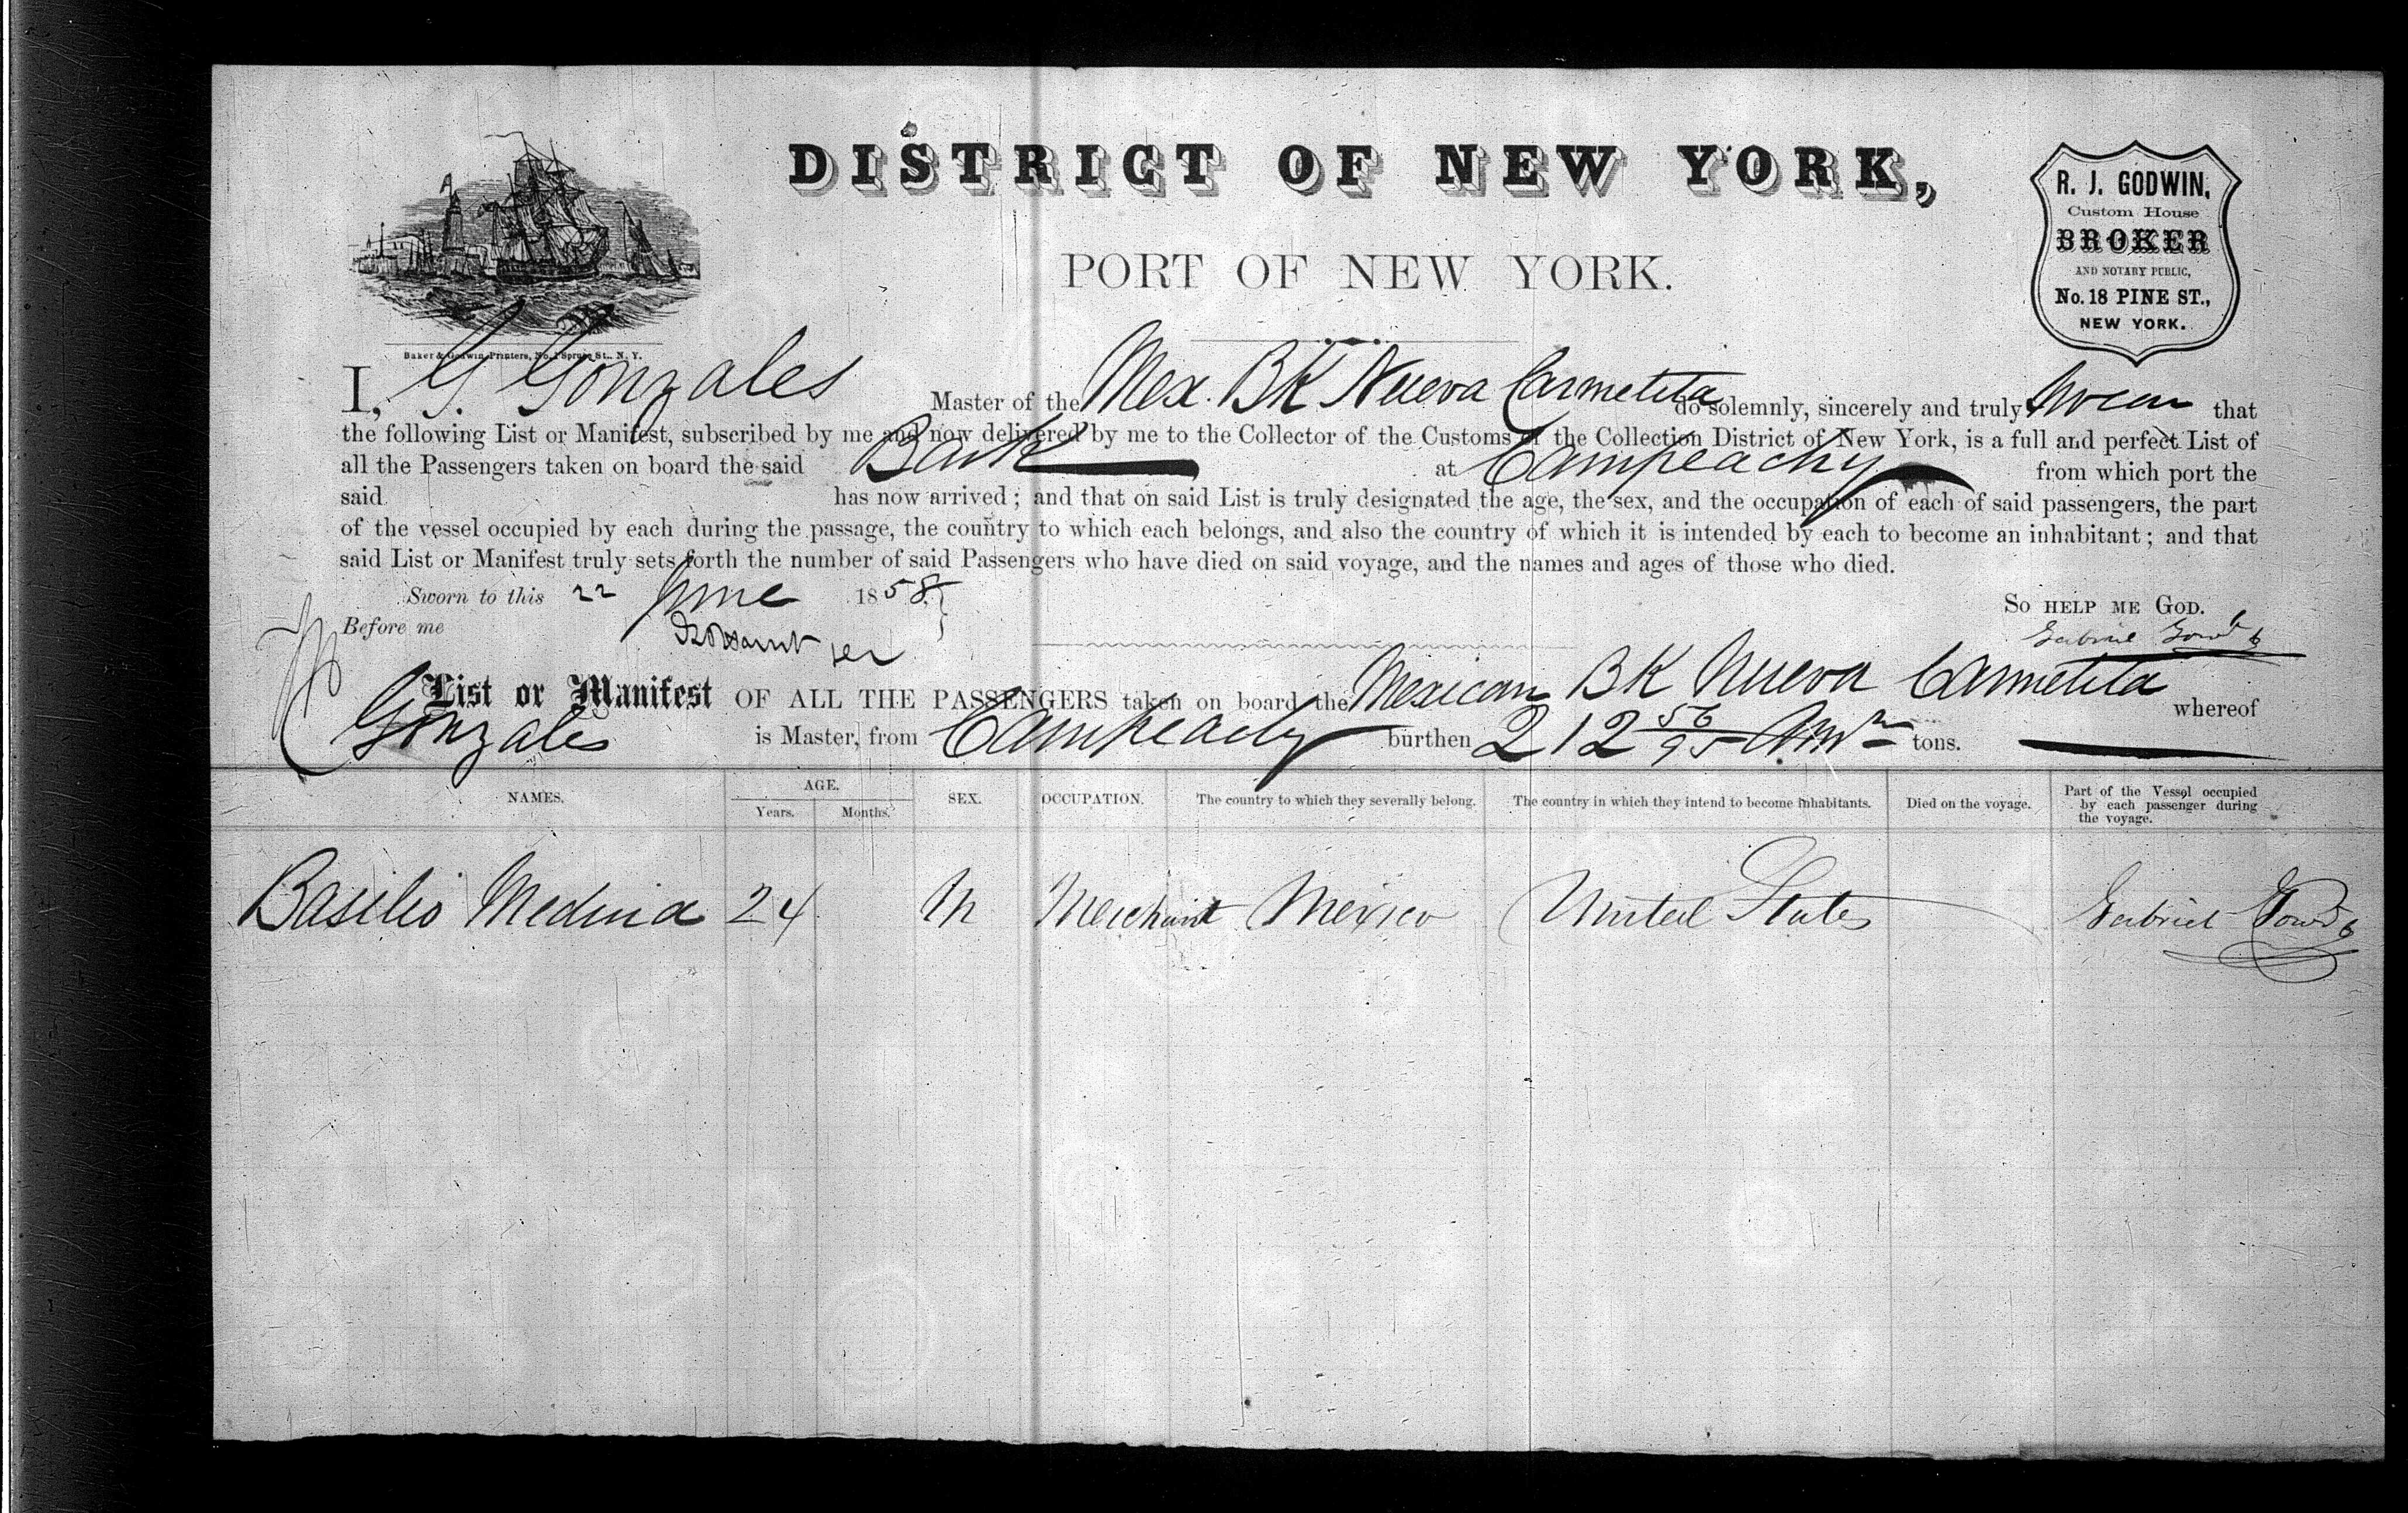 DISTRICT OF NEW YORK,
PORT OF NEW YORK.
R. J. GODWIN,
Custom House
BROKER
AND NOTARY PUBLIC,
No. 18 PINE ST.,
NEW YORK.
Baker & Godwin, Printers, No. 1 Spruce St., N. Y.
I, G. Gonzales Master of the Mex. BK Nueva Carmelita do solemnly, sincerely and truly swear that
the following List or Manifest, subscribed by me and now delivered by me to the Collector of the Customs of the Collection District of New York, is a full and perfect List of
all the Passengers taken on board the said Bark at Campeachy from which port the
said has now arrived; and that on said List is truly designated the age, the sex, and the occupation of each of said passengers, the part
of the vessel occupied by each during the passage, the country to which each belongs, and also the country of which it is intended by each to become an inhabitant; and that
said List or Manifest truly sets forth the number of said Passengers who have died on said voyage, and the names and ages of those who died.
Sworn to this 22 June 1858
So HELP ME GOD.
Before me
Gabriel
List or Manifest OF ALL THE PASSENGERS taken on board the Mexican BK Nueva Carmelita whereof
Gonzales is Master, from Campeachy burthen 212 56/95 tons.
NAMES. AGE. Years. Months. SEX. OCCUPATION. The country to which they severally belong. The country in which they intend to become inhabitants. Died on the voyage. Part of the Vessel occupied by each passenger during the voyage.
Basilio Medina 24 M Merchant Mexico United States Gabriel